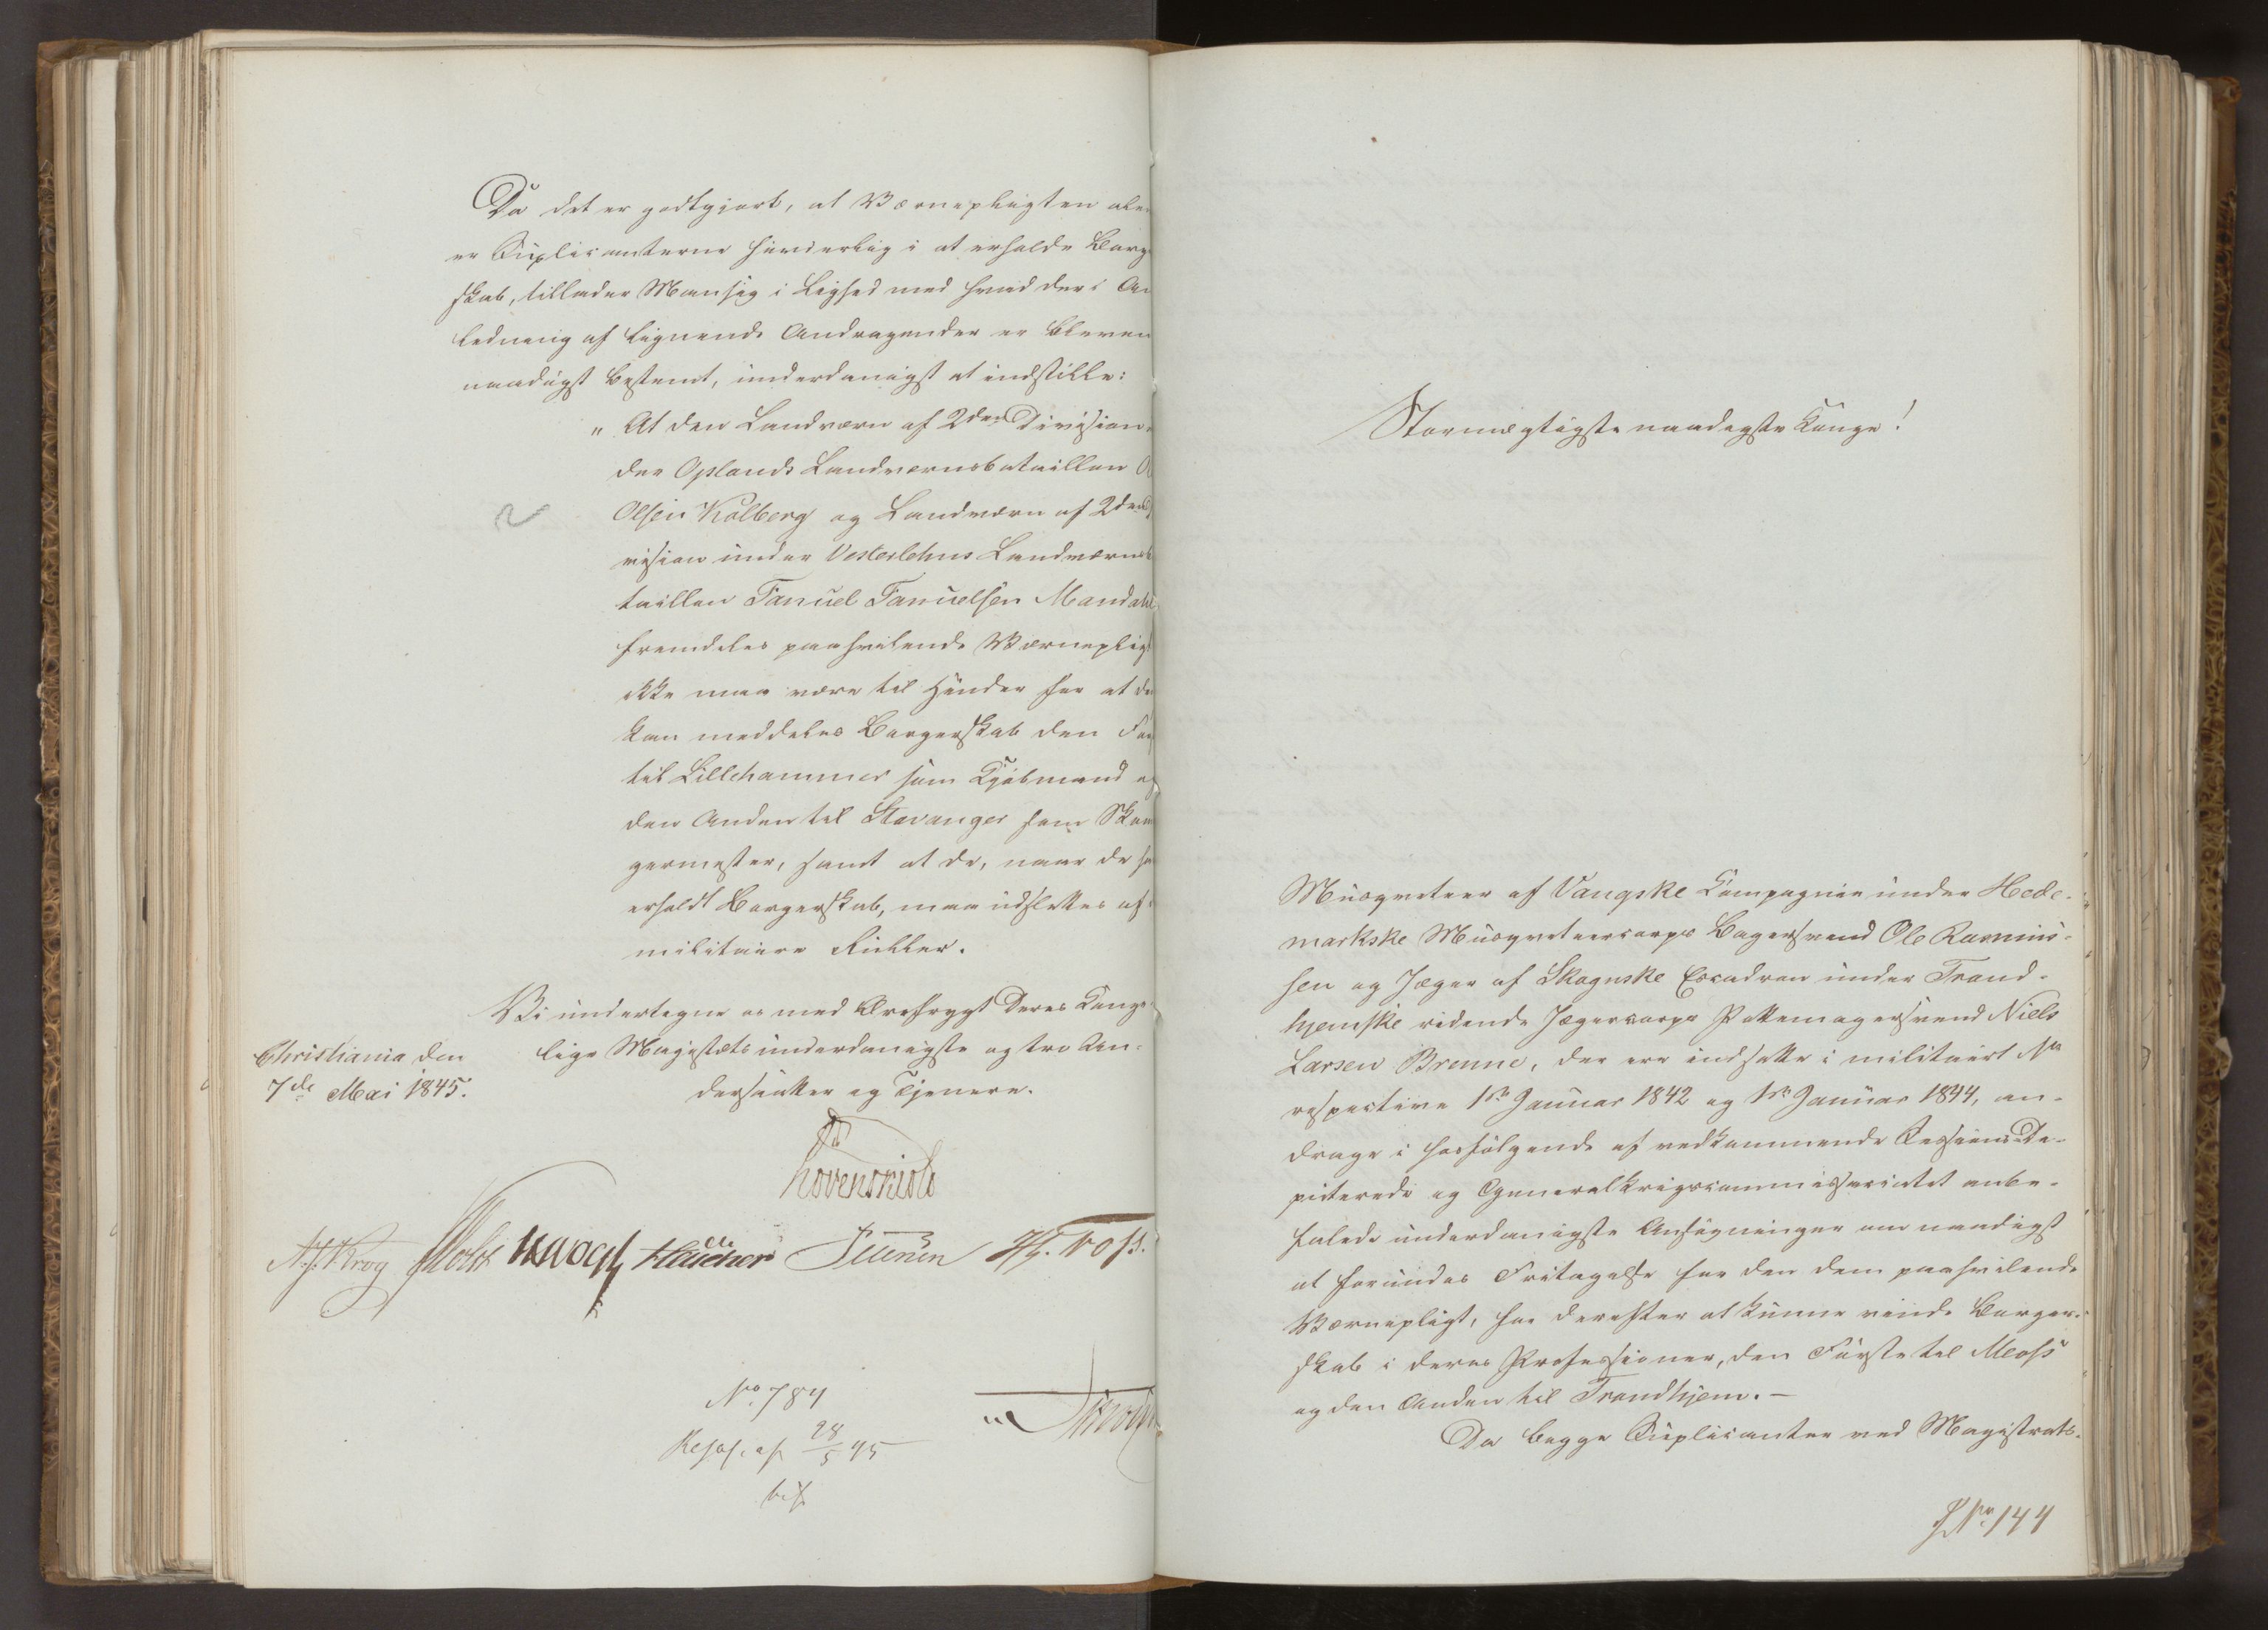 Da det er godtgjort, at Værnepligten alen
er Suplicanterne hinderlig i at erholde Borg
skab, tillader Man sig i Lighed med hvad der i An
ledning af lignende Andragender er bleven
naadigst bestemt, underdanigst at indstille:
" At den Landværn af 2den Division
der Oplands Landværnsbataillon
Olsen Kolberg og Landværn af 2den
vision under Vesterlehns Landværnsb
taillon Fanuel Fanuelsen Mandahl
fremdeles paahvilende Værneplig
ikke maa være til Hinder for at de
kan meddeles Borgerskab den Før
til Lillehammer som Kjøbmand og
den Anden til Stavanger som
germester, samt at de, naar de ha
erholdt Borgerskab, maa udslettes af
militaire Ruller.
Vi undertegne os med Ærefrygt Deres Konge-
lige Majestæts underdanigste og tro Un-
dersaatter og Tjenere.
Christiania den
7de Mai 1845.
Løvenskiold
N. J. Krog Holst JHVogt Sibbern
No. 784
Resol. af 28/5 45
Stormægtigste naadigste Konge!
Musqveteer af Vangske Compagnie under Hede-
markske Musqveteercorps Bagersvend Ole Rasmus-
sen og Jæger af Skognske Escadron under Trond-
hjemske ridende Jægercorps Pottemagersvend Niels
Larsen Brenne, der ere indsatte i militairt No
respective 1ste Januar 1842 og 1ste Januar 1844, an-
drage i hosfølgende af vedkommende Sessions De-
puterede og Generalkrigscommissariatet anbe-
falede underdanigste Ansøgninger om naadigst
at forundes Fritagelse for den dem paahvilende
Værnepligt, for derefter at kunne vinde Borger-
skab i deres Professioner, den Første til Moss
og den Anden til Trondhjem. —
Da begge Suplicanter ved Magistrats-
J No. 144